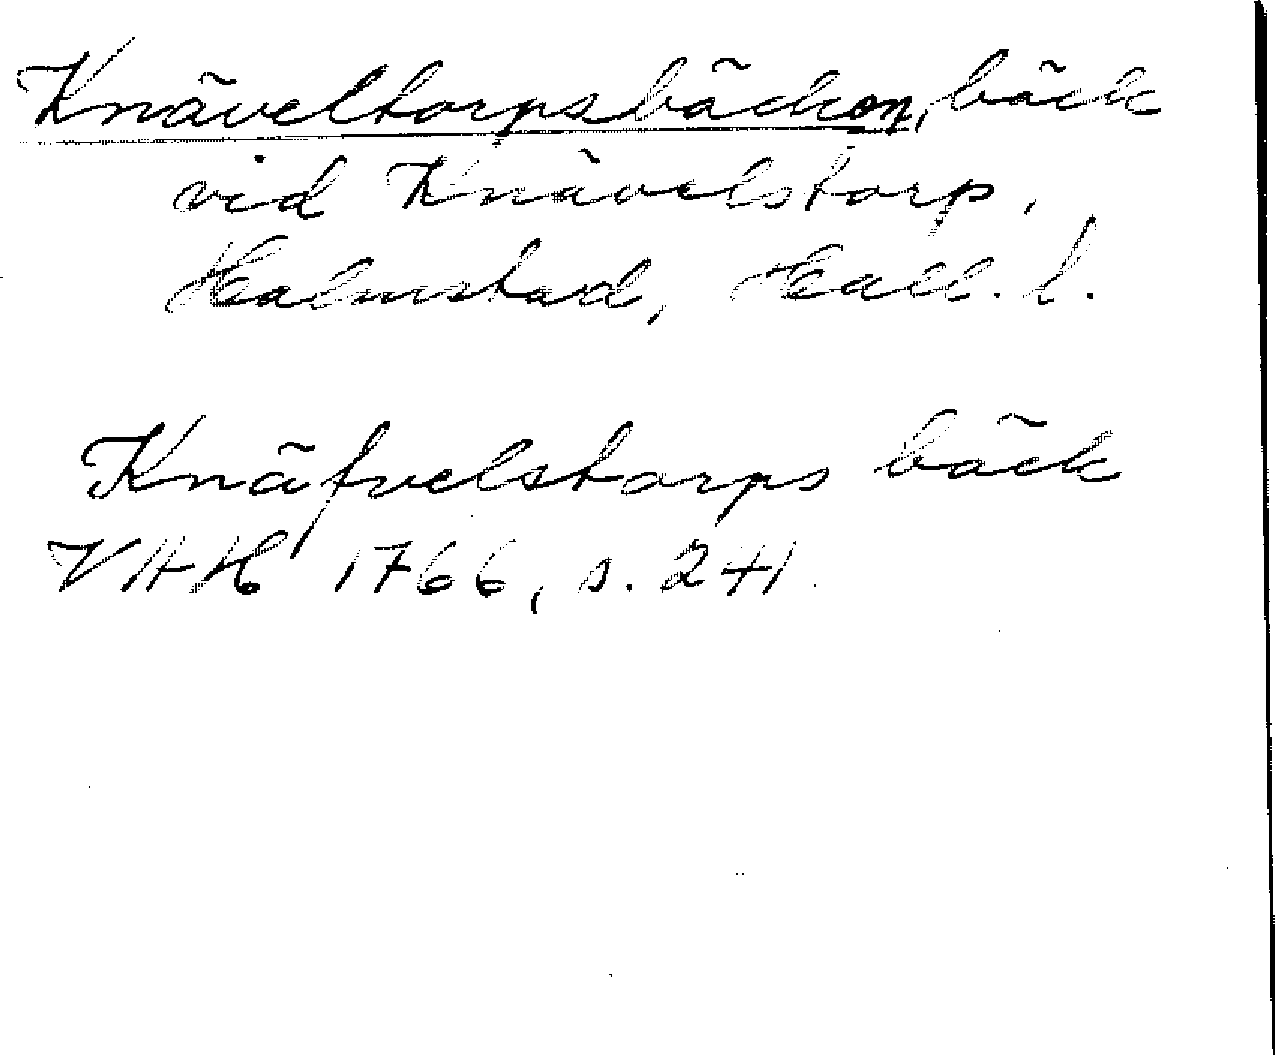 Knäveltorpsbäcken, bäck
vid Knävelstorp,
Halmstad, Hall. l.
Knäfvelstorps bäck
VAH 1766, s. 241.